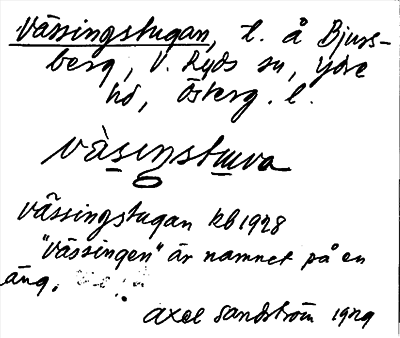 Vässingstugan, t. å Bjurs-
berg, V. Ryds sn, Ydre
hd, Österg. l.
vàsiŋstɯva
Vässingstugan kb 1928
"Vässingen" är namnet på en
äng.
Axel Sandström 1929